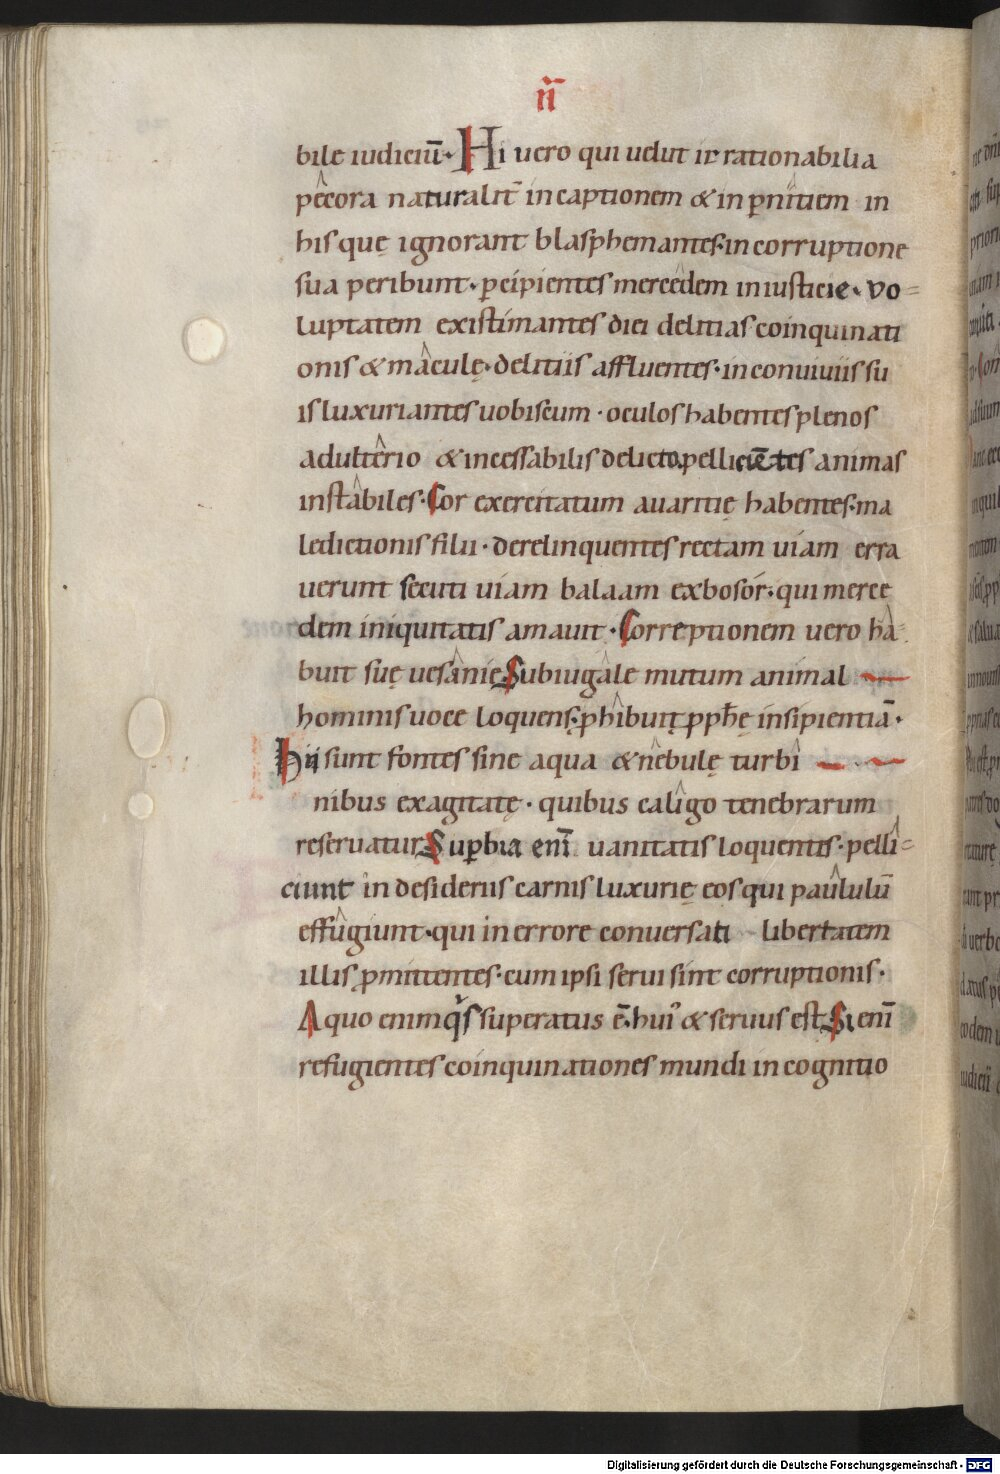 II
bile iudiciū. Hi uero qui uelut irrationabilia
pecora naturalit̄ in captionem & in p̄nitiem in
his quę ignorant blasphemantes. in corruptione
sua peribunt. p̄cipientes mercedem iniusticie. vo=
luptatem existimantes diei delitias coinquinati
onis & maculę. delitiis affluentes. in conuiuiis su
is luxuriantes uobiscum. oculos habentes plenos
adulterio & incessabilis delicto. pelliciētes animas
instabiles. Cor exercitatum auaritię habentes. ma
ledictionis filii. derelinquentes rectam uiam erra
uerunt secuti uiam balaam ex bosor. qui merce
dem iniquitatis amauit. Correptionem uero ha
buit suę uesanię Subiugale mutum animal
hominis uoce loquens. ꝓhibuit ꝓph̄ę insipientiā.
Hii sunt fontes sine aqua & nebulę turbi
nibus exagitatę. quibus caligo tenebrarum
reseruatur Sup̄bia eni̅ uanitatis loquentes. pelli=
ciunt in desideriis carnis luxurię eos qui paululū
effugiunt. qui in errore conuersati libertatem
illis ꝓmittentes. cum ipsi serui sint corruptionis.
A quo enim q̇s superatus ē. hui᾽ & seruus est Si eni̅
refugientes coinquinationes mundi in cognitio
Digitalisierung gefördert durch die Deutsche Forschungsgemeinschaft - DFG